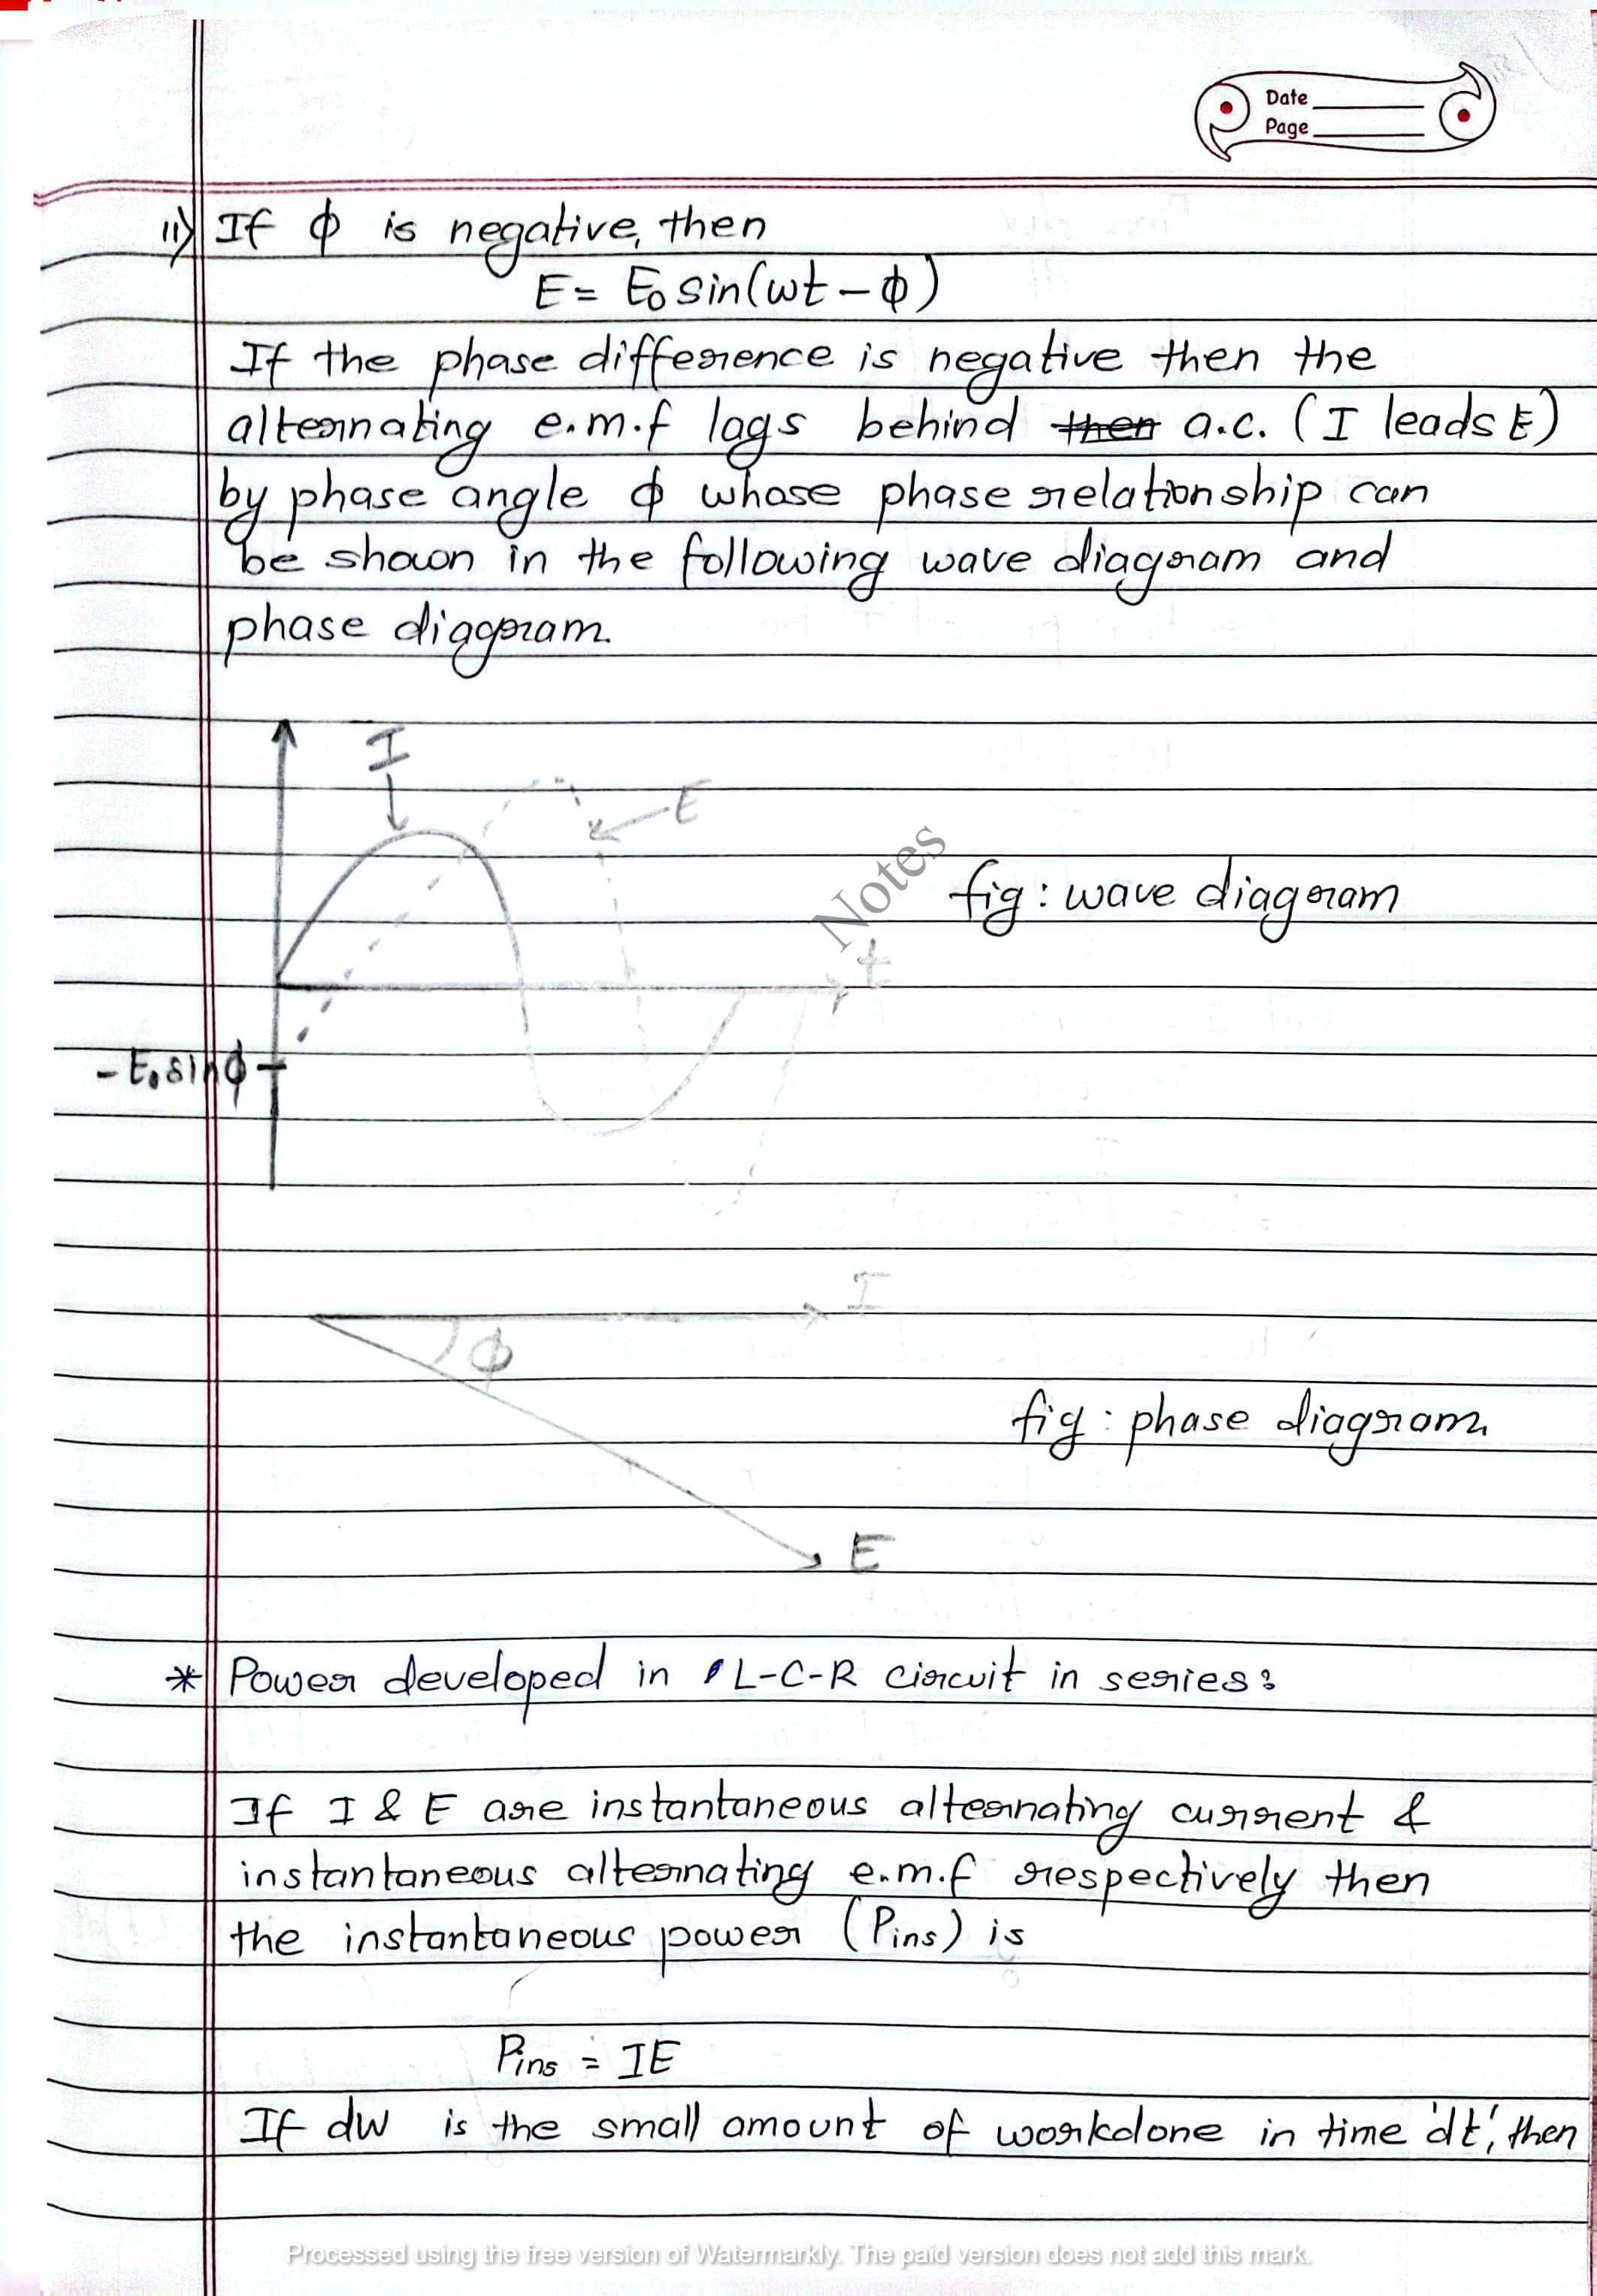 Date
Page
ii) If ϕ is negative, then
E = E₀ sin(ωt - ϕ)
If the phase difference is negative then the
alternating e.m.f lags behind then a.c. (I leads E)
by phase angle ϕ whose phase relationship can
be shown in the following wave diagram and
phase diagram.
I
E
Notes
fig: wave diagram
t
- E₀ sinϕ
I
ϕ
fig: phase diagram
E
* Power developed in L-C-R circuit in series:
If I & E are instantaneous alternating current &
instantaneous alternating e.m.f respectively then
the instantaneous power (Pins) is
Pins = IE
If dw is the small amount of workdone in time 'dt', then
Processed using the free version of Watermarkly. The paid version does not add this mark.